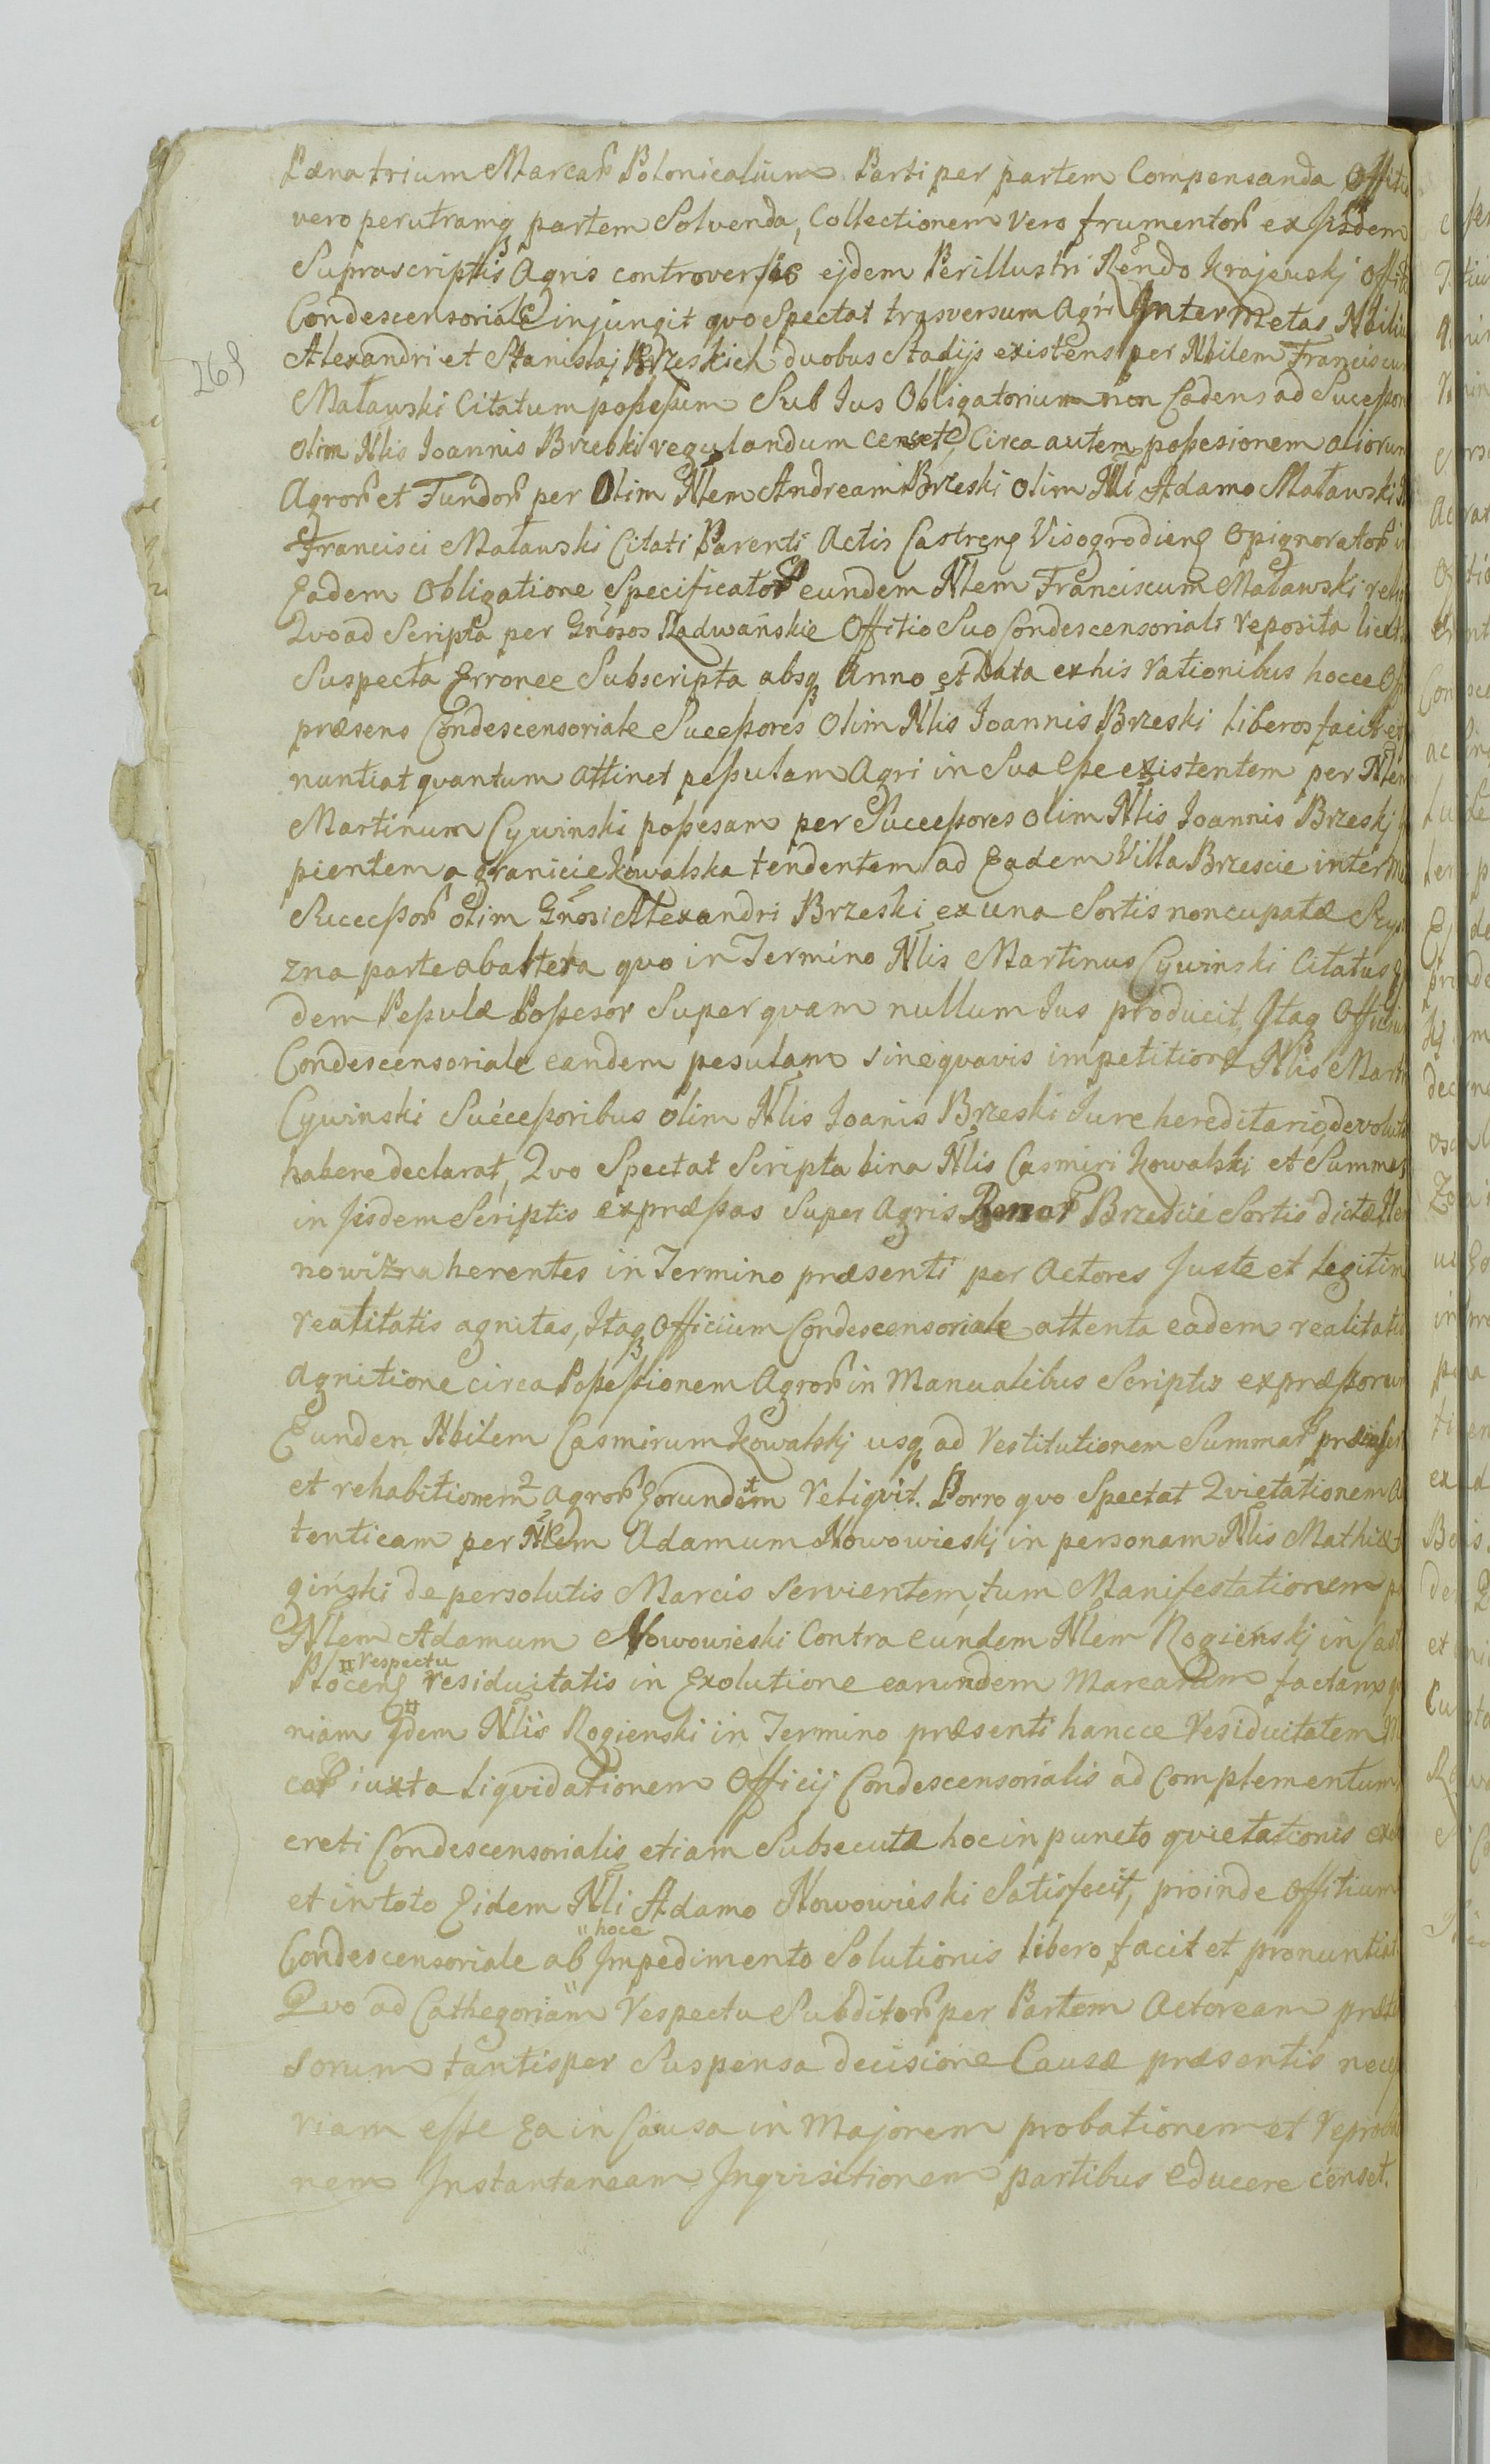 Pæna trium Marcarꝝ Polonicalium Parti per partem Compensanda Offitio
vero per utramqꝫ partem Solvenda, Collectionem vero frumentorꝝ ex Jisdem
Suprascriptis Agris controversis ejdem Perillustri Rendo Krajewskj Offit
Condescensoriale injungit quo Spectat trasversum Agri Inter Metas Nbiliu
Alexandri et Stanislaj Brzeskich duobus Stadijs existens per Nbilem Franciscum
Maławski Citatum poßeßum Sub Jus Obligatorium non Cadens ad Suceßor
olim Nlis Joannis Brzeski regulandum censet, Circa autem poßesionem aliorum
Agrorꝝ et Fundorꝝ per Olim Nlem Andream Brzeski olim Nli Adamo Maławski
Francisci Maławski Citati Parenti Actis Castreng Visogrodieng Opignoratorꝝ i
Eadem Obligatione Specificatorꝝ eundem Nlem Franciscum Maławski reli
Quo ad Scripta per Gnosos Radwańskie Offitio Suo Condescensoriali reposita licet
Suspecta Erronee Subscripta absqꝫ Anno et Data ex his rationibus hocce Off
præsens Condescensoriale Succeßores Olim Nlis Joannis Brzeski liberos facit et
nuntiat quantum attinet peßulam Agri in Sua Eße existentem per Nlem
Martinum Cywinski poßesam per Succeßores olim Nlis Joannis Brzeskj
pientem a granicie Kowalska tendentem ad Eadem Villa Brzescie inter M
Succeßorꝝ olim Gnosi Alexandri Brzeski ex una Sortis noncupatæ
zna parte ab altera quo in Termino Nlis Martinus Cywinski Citatus
dem Peßulæ Poßesor Super quam nullum Jus producit, Itaqꝫ Officiu
Condescensoriale eandem pesulam sine quavis impetitione Nlis Mart
Cywinski Succeßoribus olim Nlis Joanis Brzeski Jure hereditario devolut
habere declarat, Quo Spectat Scripta bina Nlis Casmiri Kowalski et Summas
in Jisdem Scriptis expræßas Super Agris Bonorꝝ Brzescie Sortis dictæ
nowizna herentes in Termino præsenti per Actores Juste et legitim
realitatis agnitas, Itaqꝫ Officium Condescensoriale attenta eadem realitatis
agnitione circa Poßeßionem Agrorꝝ in Manualibus Scriptis expræßorum
Eunden Nbilem Casmirum Kowalskj usqꝫ ad restitutionem Summarꝝ præinser
et rehabitionem agrorꝝ Eorundem reliqvit. Porro quo Spectat Quietationem A
tenticam per Nlem Adamum Nowowieskj in personam Nlis Mathiæ
giński de persolutis Marcis Servientem, tum Manifestationem p
Nlem Adamum Nowowieski Contra eundem Nlem Rogieńskj in Cast
ß/ ⌗ respectu
Plöceng residuitatis in Exolutione earundem Marcarum factam
niam Jdem Nlis Rogienski in Termino præsenti hancce residuitatem M
carꝝ iuxta Liqvidationem Officij Condescensorialis ad Complementum
creti Condescensorialis etiam Subsecuta hoc in puncto qvietationis
et in toto Eidem Nli Adamo Nowowieski Satisfecit, proinde Offitium
" hoce
Condescensoriale ab Impedimento Solutionis libero facit et pronuntiat
Quo ad Cathegoriam respectu Subditorꝝ per Partem Actoream præte
sorum tantisper Suspensa decisione Causæ præsentis neceß
riam eße Ea in Causa in Majorem probationem et reproba
nem Instantaneam Inqvisitionem partibus educere censet.
268